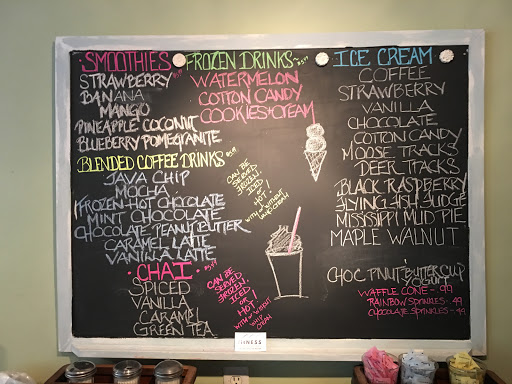 SMOOTHIES
STRAWBERRY
BANANA
MANGO
PINEAPPLE COCONUT
BLUEBERRY POMEGRANITE
FROZEN DRINKS
WATERMELON
COTTON CANDY
COOKIES+CREAM
BLENDED COFFEE DRINKS
JAVA CHIP
MOCHA
FROZEN HOT CHOCOLATE
MINT CHOCOLATE
CHOCOLATE PEANUT BUTTER
CARAMEL LATTE
VANILLA LATTE
CAN BE
SERVED
FROZEN,
ICED
OR
HOT
WITH OR WITHOUT
WHIP CREAM
CHAI
SPICED
VANILLA
CARAMEL
GREEN TEA
CAN BE
SERVED
FROZEN,
ICED
OR
HOT
ICE CREAM
COFFEE
STRAWBERRY
VANILLA
CHOCOLATE
COTTON CANDY
MOOSE TRACKS
DEER TRACKS
BLACK RASPBERRY
FLYING FISH FUDGE
MISSISSIPPI MUD PIE
MAPLE WALNUT
CHOC PNUT BUTTER CUP
YOGURT
WAFFLE CONE - .99
RAINBOW SPRINKLES - .49
CHOCOLATE SPRINKLES - .49